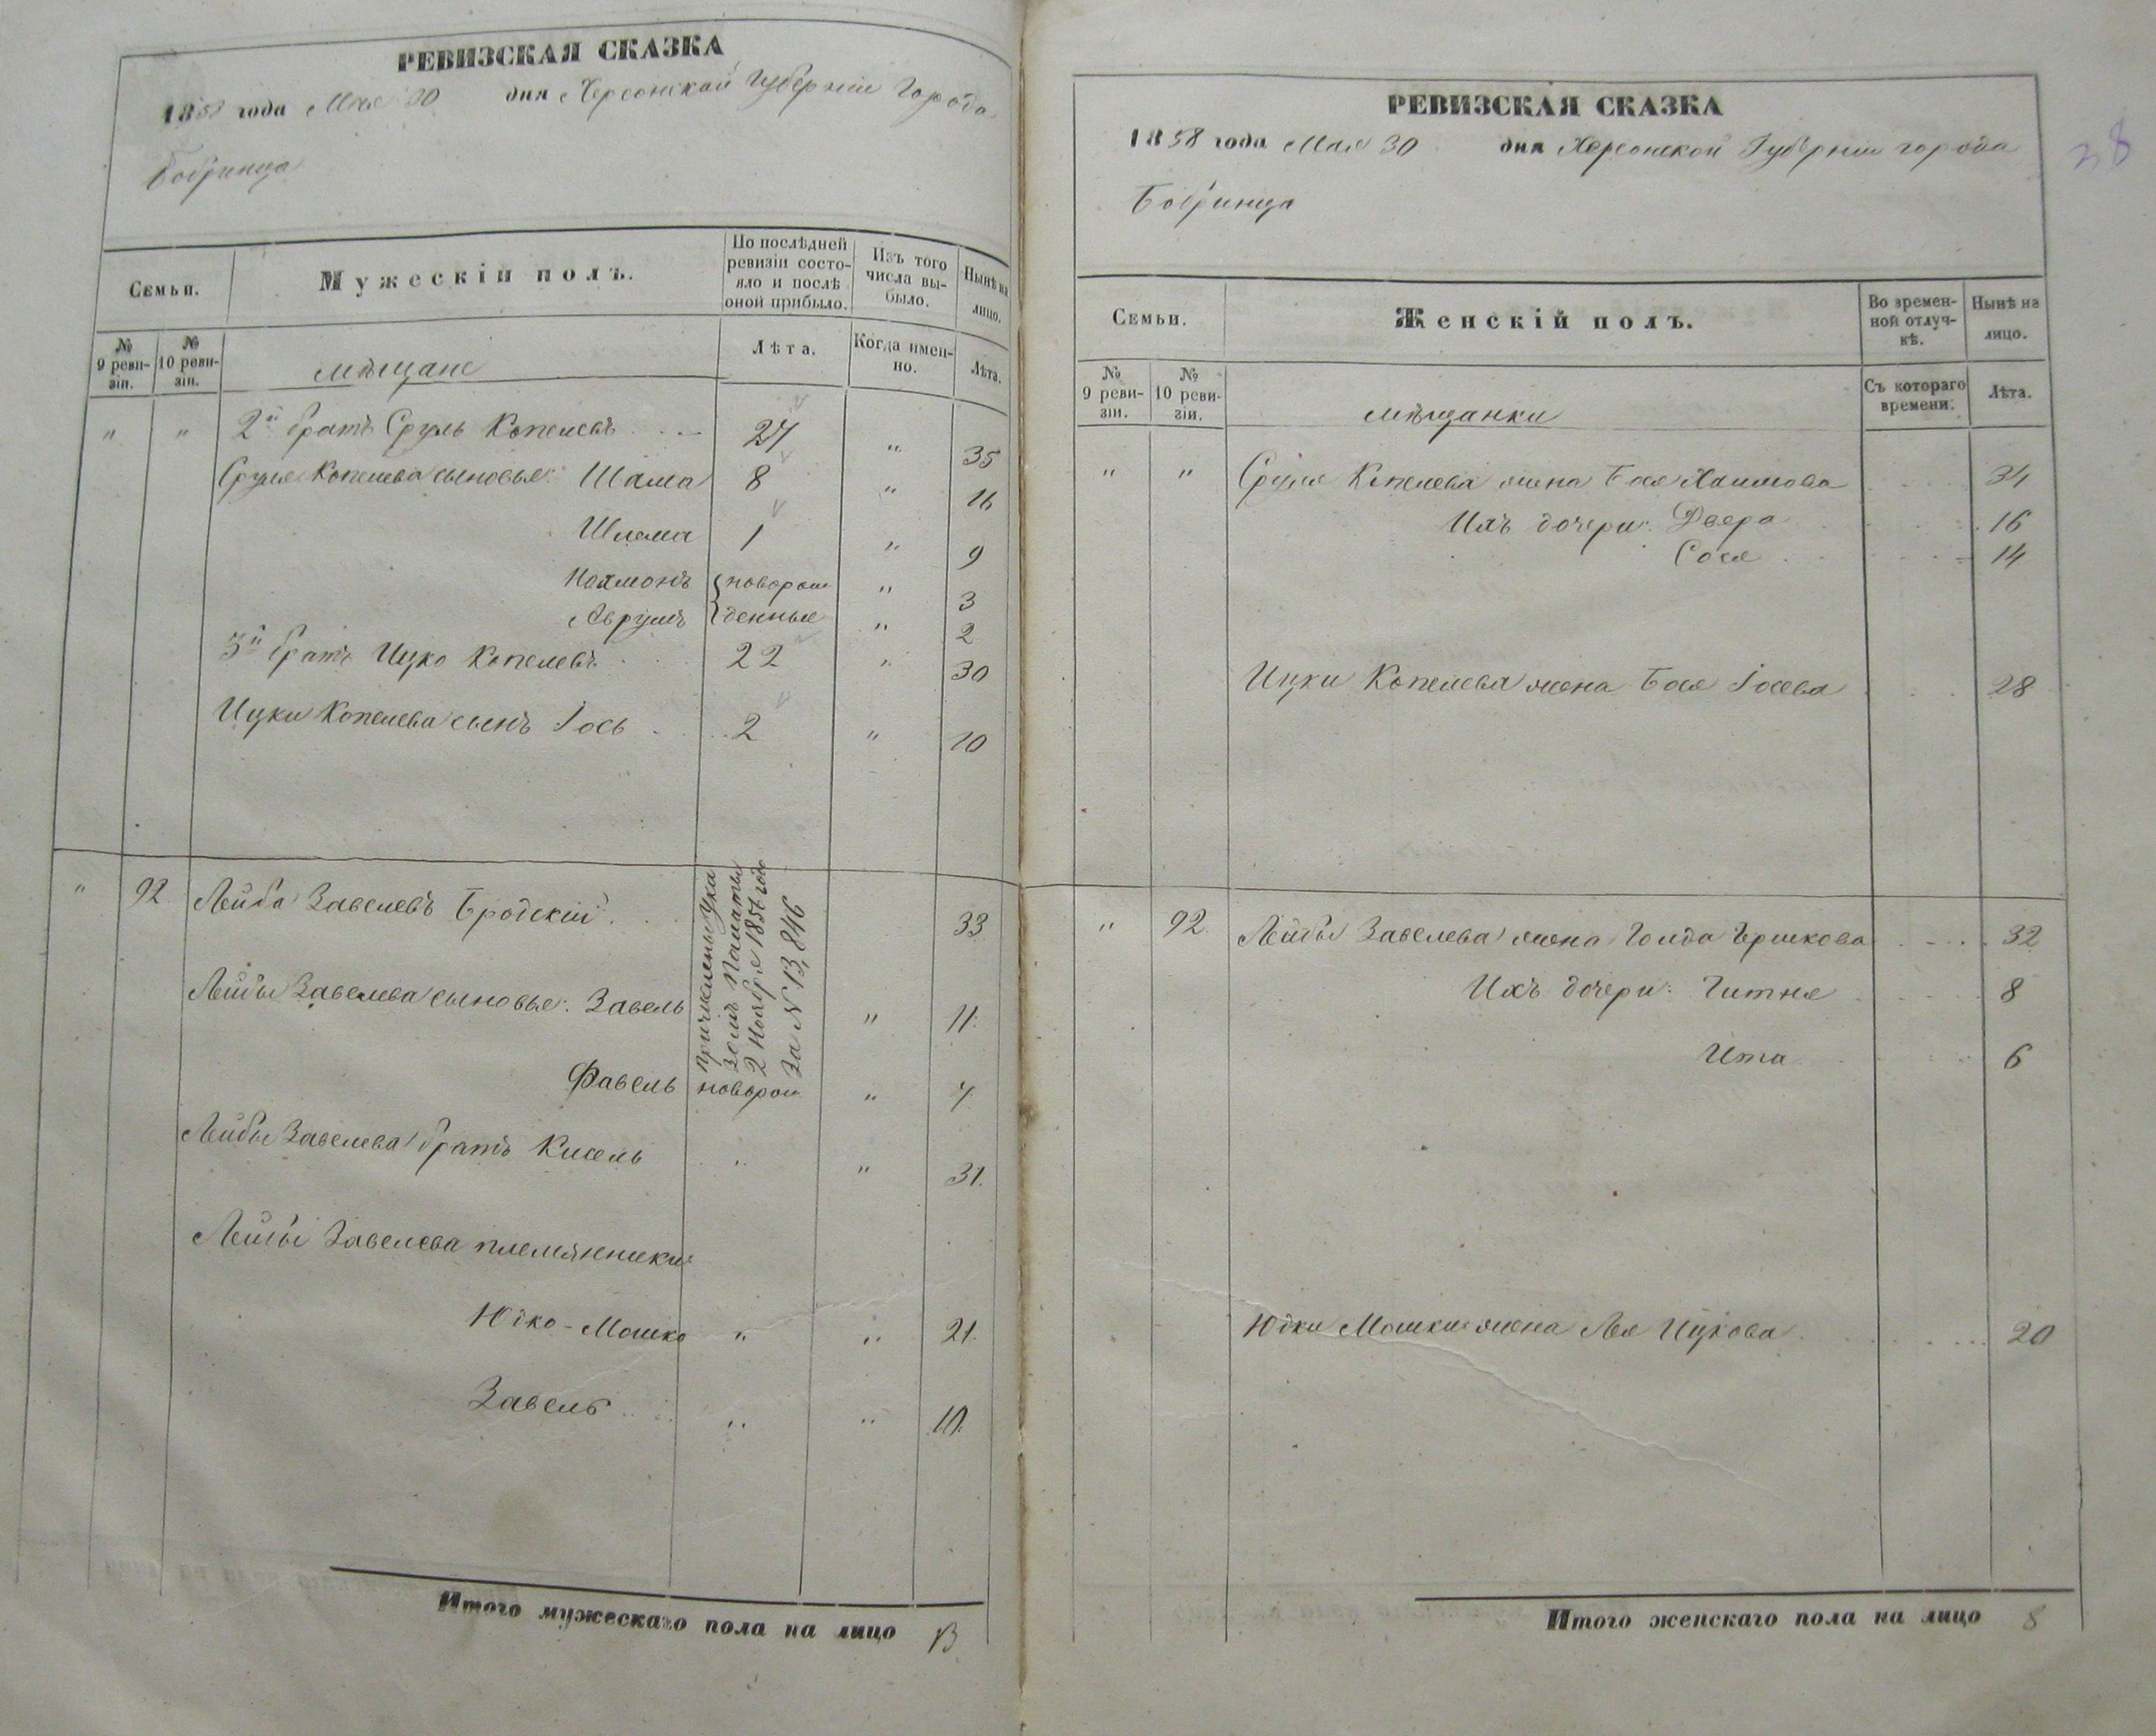 РЕВИЗСКАЯ СКАЗКА
1858 года Мая 30 дня Херсонской Губерніи Города
Бобринца
Семьи.
Мужескій полъ.
По послѣдней ревизіи состо-
яло и послѣ
оной прибыло.
Изъ того
числа вы-
было.
Нынѣ на
лицо.
№
9 реви-
зіи.
№
10 реви-
зіи.
мѣщане
Лѣта.
Когда имен-
но.
Лѣта.
" " 2й братъ Сруль Копелевъ 27 " 35
Сруля Копелева сыновья: Шама 8 " 16
Шлема 1 " 9
Нахманъ новорож " 3
Аврумъ денные " 2
3й братъ Ицко Копелевъ 22 " 30
Ицки Копелева сынъ Іось 2 " 10
" 92 Лейба Завелевъ Бродскій 33
причислены Ука
зомъ Палаты
2 Ноября 1856 года
за № 13,846
Лейбы Завелева сыновья: Завель " 11
Фавель новорож " 7
Лейбы Завелева братъ Кисель " " 31.
Лейбы Завелева племянники:
Юдко-Мошко " " 21.
Завель " " 10.
Итого мужескаго пола на лицо 13
РЕВИЗСКАЯ СКАЗКА
1858 года Мая 30 дня Херсонской Губерніи города
Бобринца
Семьи.
Женскій полъ.
Во времен-
ной отлуч-
кѣ.
Нынѣ на
лицо.
№
9 реви-
зіи.
№
10 реви-
зіи.
мѣщанки
Съ котораго
времени.
Лѣта.
" " Сруля Копелева жена Бася Хаимова 34
Ихъ дочери: Двера 16
Сося 14
Ицки Копелева жена Бася Іосева 28
" 92 Лейбы Завелева жена Голда Гершкова 32
Ихъ дочери: Гитля 8
Ита 6
Юдки Мошки жена Лея Ицкова 20
Итого женскаго пола на лицо 8